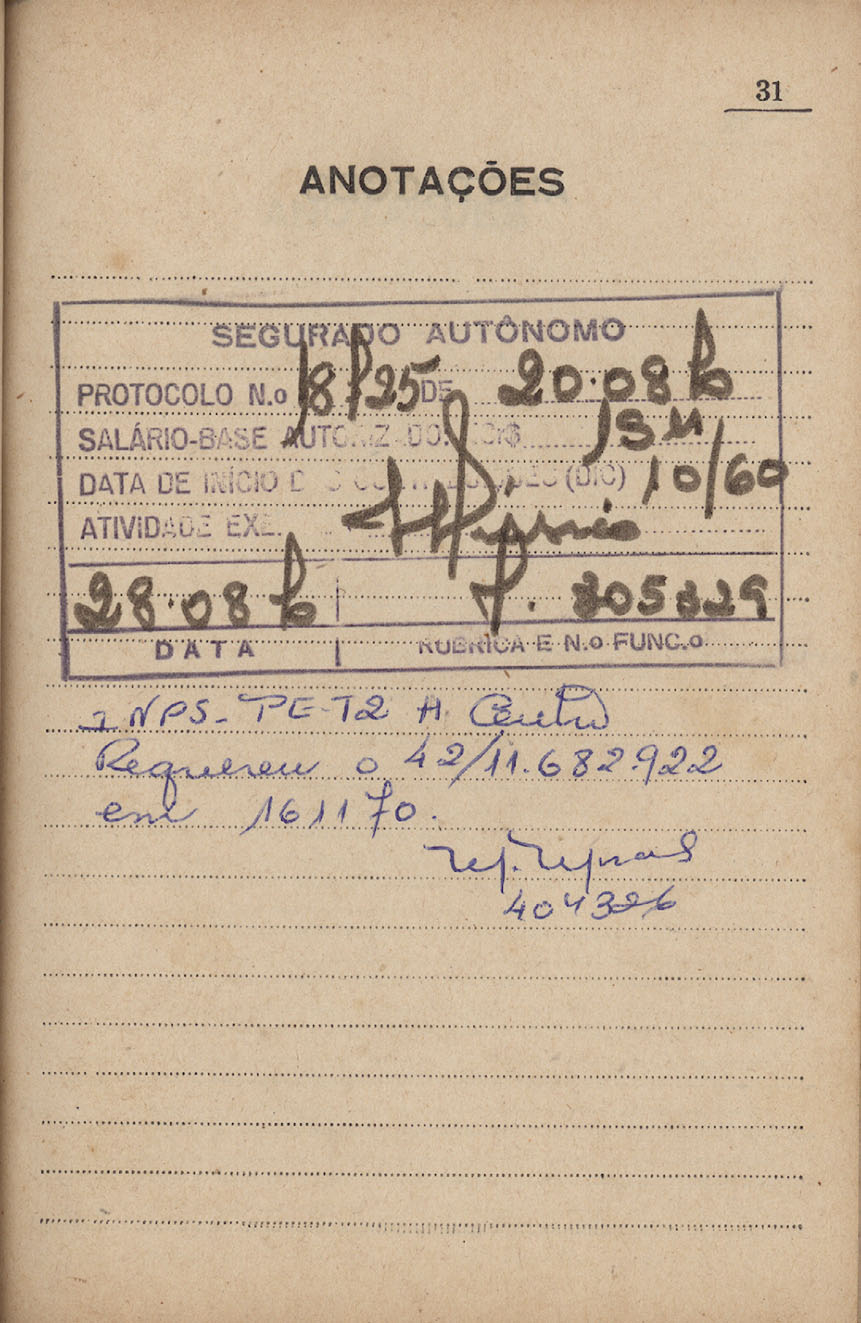 31
ANOTAÇÕES
SEGURADO AUTÔNOMO
PROTOCOLO N.o DE 20.08
SALÁRIO-BASE AUTORIZADO:
DATA DE INÍCIO (DIC) 10/60
ATIVIDADE
28.08
DATA RUBRICA E N.o FUNC.o
INPS-PE-T2 A. Centro
Requereu o 42/11.682.922
em 161170.
404326